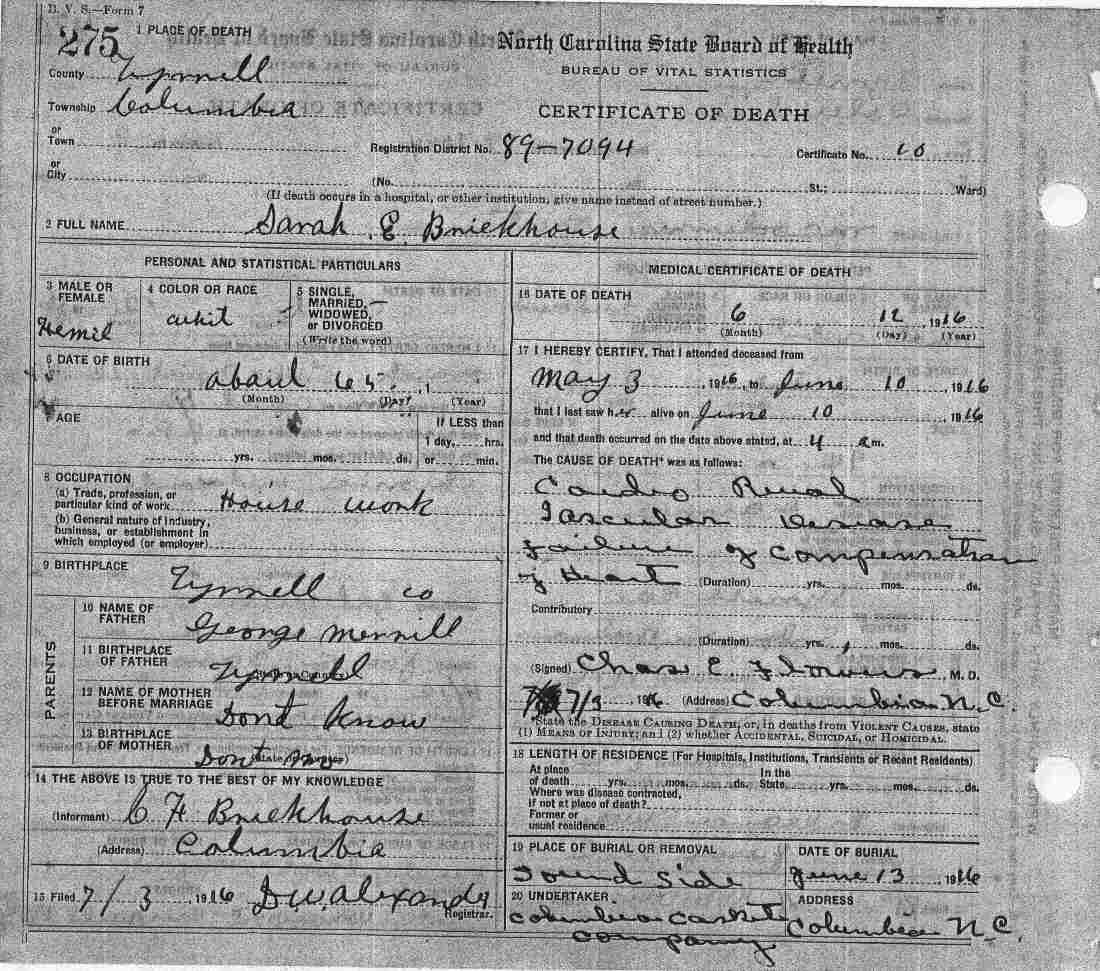 B. V. S.—Form 7
275
1 PLACE OF DEATH
North Carolina State Board of Health
BUREAU OF VITAL STATISTICS
CERTIFICATE OF DEATH
County Tyrrell
Township Columbia
or Town
Registration District No. 89-7094
Certificate No. 10
or City (No. St.; Ward)
(If death occurs in a hospital, or other institution, give name instead of street number.)
2 FULL NAME Sarah E Brickhouse
PERSONAL AND STATISTICAL PARTICULARS
3 MALE OR FEMALE Femil
4 COLOR OR RACE whit
5 SINGLE, MARRIED, WIDOWED, or DIVORCED (Write the word)
6 DATE OF BIRTH about 65. , 1
(Month) (Day) (Year)
7 AGE
yrs. mos. ds.
If LESS than 1 day, hrs. or min.
8 OCCUPATION
(a) Trade, profession, or particular kind of work House work
(b) General nature of industry, business, or establishment in which employed (or employer)
9 BIRTHPLACE Tyrrell co
PARENTS
10 NAME OF FATHER George Merrill
11 BIRTHPLACE OF FATHER Tyrrell
12 NAME OF MOTHER BEFORE MARRIAGE Dont Know
13 BIRTHPLACE OF MOTHER Dont
14 THE ABOVE IS TRUE TO THE BEST OF MY KNOWLEDGE
(Informant) C F Brickhouse
(Address) Columbia
15 Filed 7/3 1916 D.W. Alexander Registrar.
MEDICAL CERTIFICATE OF DEATH
16 DATE OF DEATH
6 12, 1916
(Month) (Day) (Year)
17 I HEREBY CERTIFY, That I attended deceased from
May 3, 1916, to June 10, 1916
that I last saw her alive on June 10 1916
and that death occurred on the date above stated, at 4 am.
The CAUSE OF DEATH* was as follows:
Cardio Renal
Vascular Desease
failure of compensation
of Heart (Duration) yrs. mos. ds.
Contributory
(Duration) yrs. mos. ds.
(Signed) Chas E Flowers M. D.
7/3, 1916 (Address) Columbia N.C.
*State the DISEASE CAUSING DEATH, or, in deaths from VIOLENT CAUSES, state
(1) MEANS OF INJURY; and (2) whether ACCIDENTAL, SUICIDAL, or HOMICIDAL.
18 LENGTH OF RESIDENCE (For Hospitals, Institutions, Transients or Recent Residents)
At place of death yrs. mos. ds. In the State yrs. mos. ds.
Where was disease contracted, if not at place of death?
Former or usual residence
19 PLACE OF BURIAL OR REMOVAL
Sound Side
DATE OF BURIAL
June 13 1916
20 UNDERTAKER
Columbia Casket
company
ADDRESS
Columbia N.C.